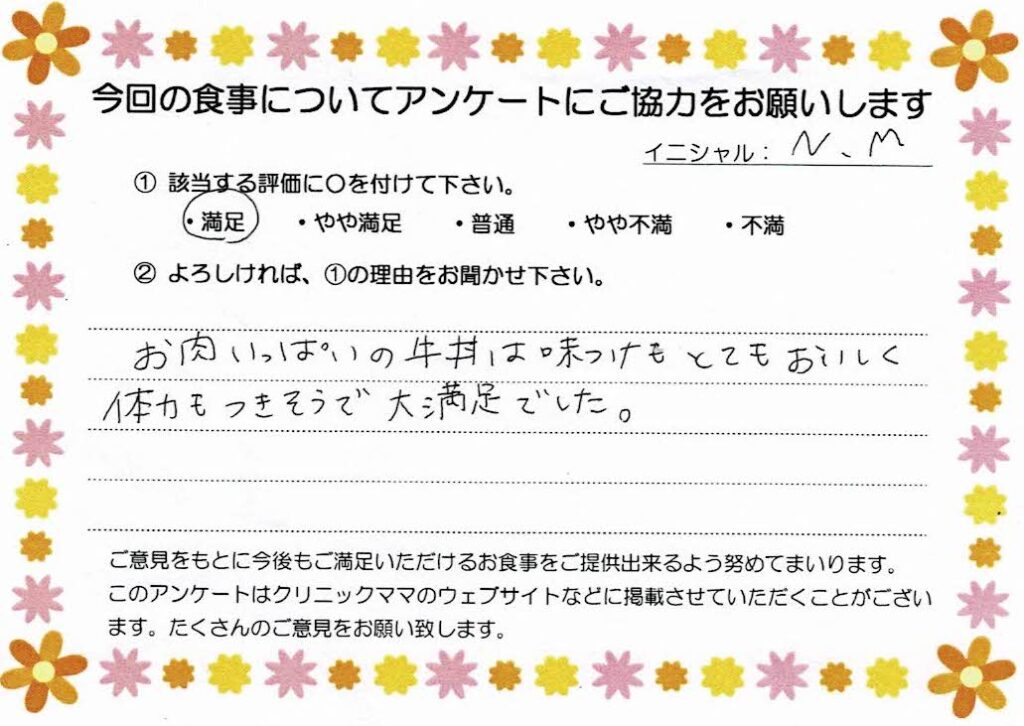 今回の食事についてアンケートにご協力をお願いします
イニシャル： N、M
① 該当する評価に〇を付けて下さい。
・満足 ・やや満足 ・普通 ・やや不満 ・不満
② よろしければ、①の理由をお聞かせ下さい。
お肉いっぱいの牛丼は味つけもとてもおいしく
体力もつきそうで大満足でした。
ご意見をもとに今後もご満足いただけるお食事をご提供出来るよう努めてまいります。
このアンケートはクリニックママのウェブサイトなどに掲載させていただくことがござい
ます。たくさんのご意見をお願い致します。